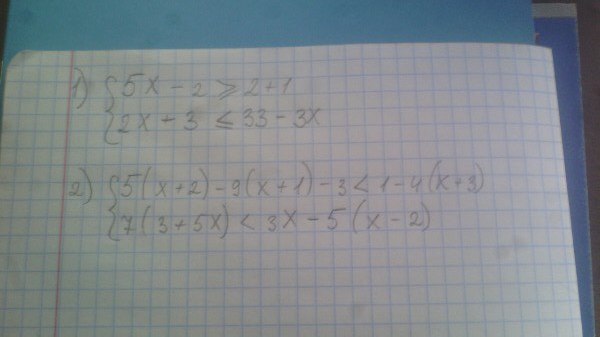 1) { 5x - 2 ⩾ 2 + 1
{ 2x + 3 ≤ 33 - 3x
2) { 5(x+2) - 9(x+1) - 3 < 1 - 4(x+3)
{ 7(3+5x) < 3x - 5(x-2)